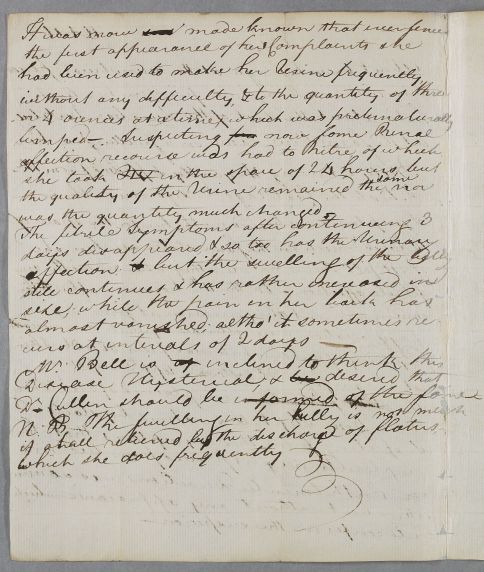 It was now made known that ever since
the first appearance of her Complaints she
had been used to make her Urine frequently
without any difficulty, & to the quantity of three
or 4 ounces at a time, which was preternaturally
limped. Suspecting now some Renal
affection recourse was had to Nitre of which
she took in the space of 24 hours, but
the quality of the Urine remained the same nor
was the quantity much changed.
The febrile Symptoms after continueing 3
days disappeared & so too has the Urinary
affection & but the swelling of the belly
still continues & has rather encreased in
size, while the pain in her back has
almost vanished, altho' it sometimes re
curs at intervals of 2 days
Mr. Bell is inclined to think this
Disease Hysterical & desired that
Dr. Cullen should be informed of the same
N.B. The swelling in her belly is not much
if atall relieved by the discharge of flatus
which she does frequently